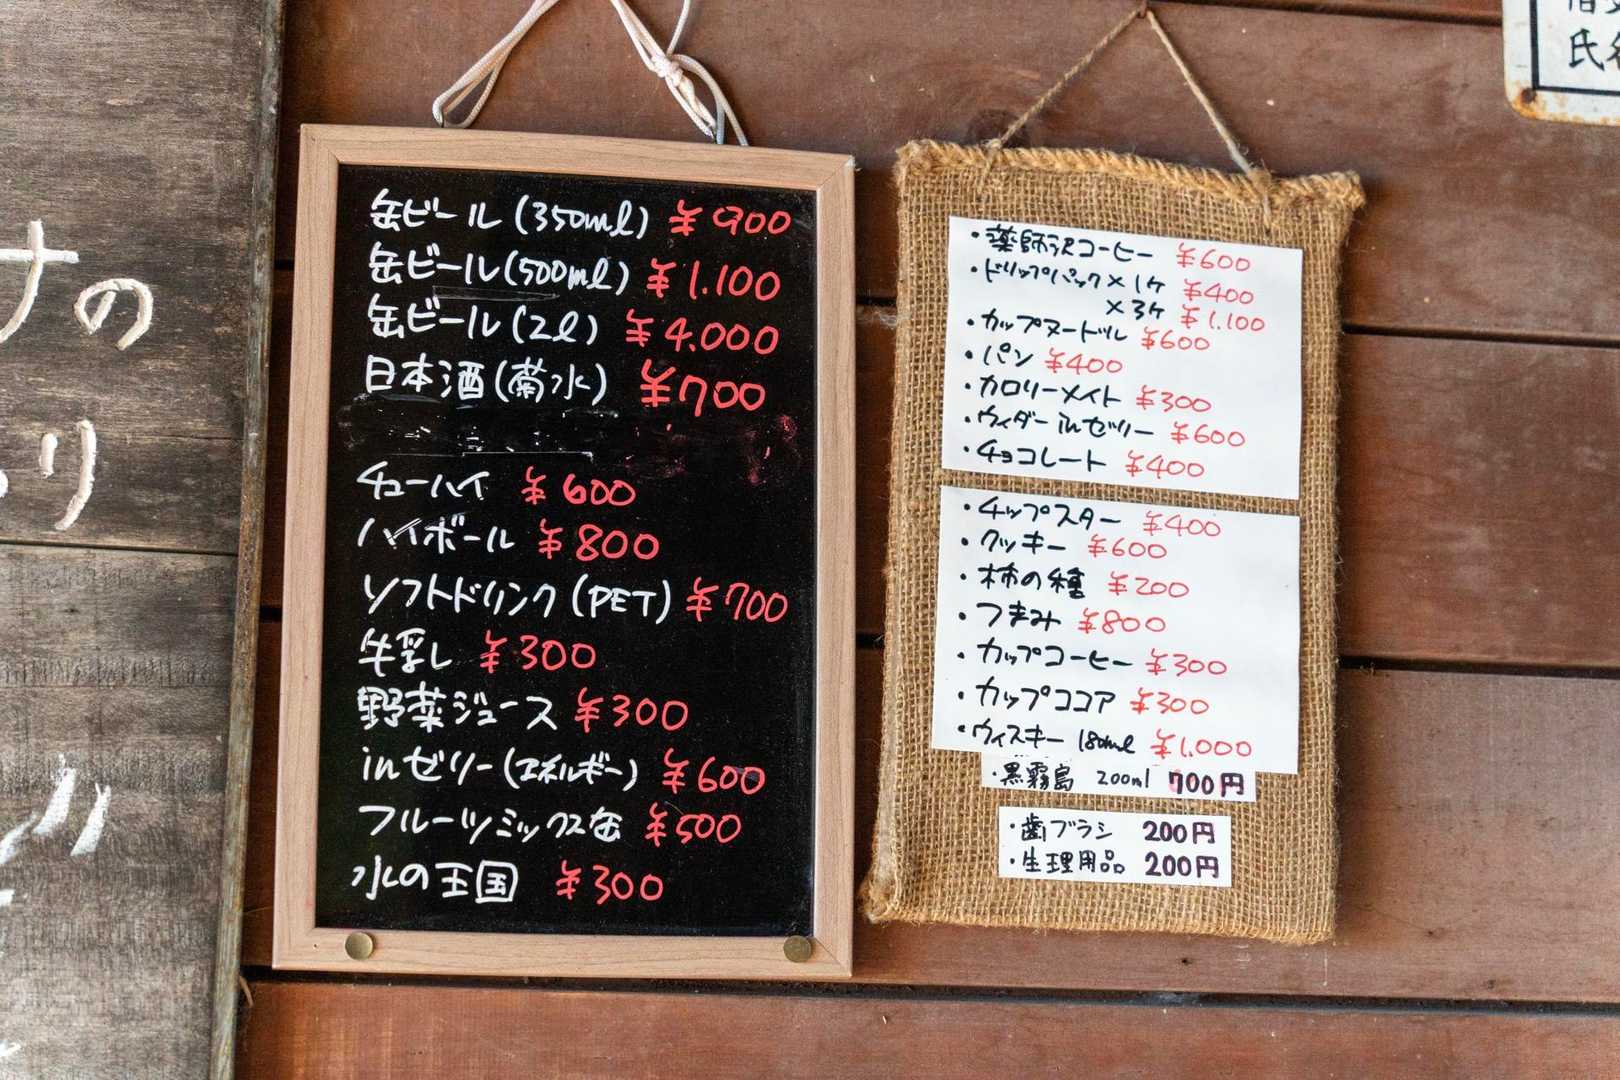 ナの
り
缶ビール(350ml) ¥900
缶ビール(500ml) ¥1.100
缶ビール(2l) ¥4.000
日本酒(菊水) ¥700
チューハイ ¥600
ハイボール ¥800
ソフトドリンク(PET) ¥700
牛乳 ¥300
野菜ジュース ¥300
inゼリー(エネルギー) ¥600
フルーツミックス缶 ¥500
水の王国 ¥300
・薬師沢コーヒー ¥600
・ドリップパック×1ケ ¥400
×3ケ ¥1.100
・カップヌードル ¥600
・パン ¥400
・カロリーメイト ¥300
・ウィダーinゼリー ¥600
・チョコレート ¥400
・チップスター ¥400
・クッキー ¥600
・柿の種 ¥200
・つまみ ¥800
・カップコーヒー ¥300
・カップココア ¥300
・ウィスキー 180ml ¥1.000
・黒霧島 200ml 700円
・歯ブラシ 200円
・生理用品 200円
氏名